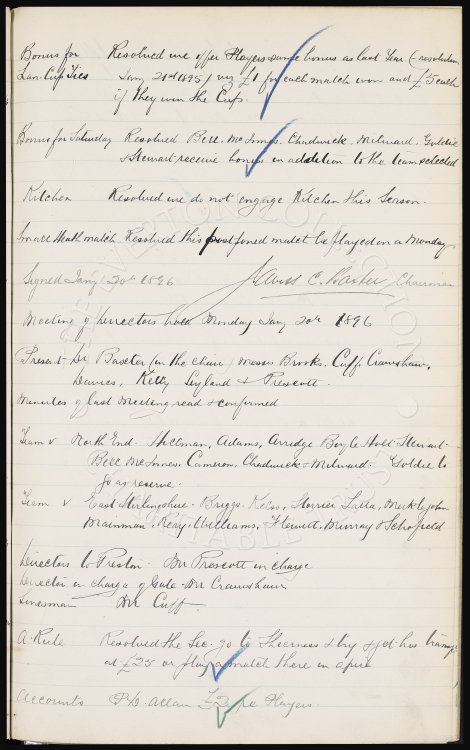 Bonus for Resolved we offer Players same bonus as last Year (-resolution
Lan. Cup Ties Jany 21st 1895) viz £1 for each match won and £5 each
if they win the Cup.
Bonus for Saturday Resolved Bell. McInnes. Chadwick, Milward. Goldie
& Stewart receive bonus in addition to the team selected
Kitchen Resolved we do not engage Kitchen this Season.
Small Heath match Resolved this postponed match be played on a Monday
Signed Jany 20th 1896 James C. Baxter Chairman
Meeting of Directors held Monday Jany 20th 1896
Present Dr Baxter (in the Chair) Messrs Brooks. Cuff. Crawshaw,
Davies, Kelly Leyland & Prescott.
Minutes of last Meeting read & confirmed
Team v North End. Hillman, Adams, Arridge Boyle Holt Stewart
Bell McInnes. Cameron, Chadwick & Milward. Goldie to
go as reserve.
Team v East Stirlingshire. Briggs. Kelso, Storrier Latta, Meiklejohn
Mainman. Williams, Flewitt. Murray & Schofield
Directors to Preston. Mr Prescott in charge
Director in charge of Gate. Mr Crawshaw
Linesman Mr Cuff.
A. Rule Resolved the Sec. go to Sheerness & try & get his
at £25 or play a match there in
Accounts P. D. Allan £2 re Players.